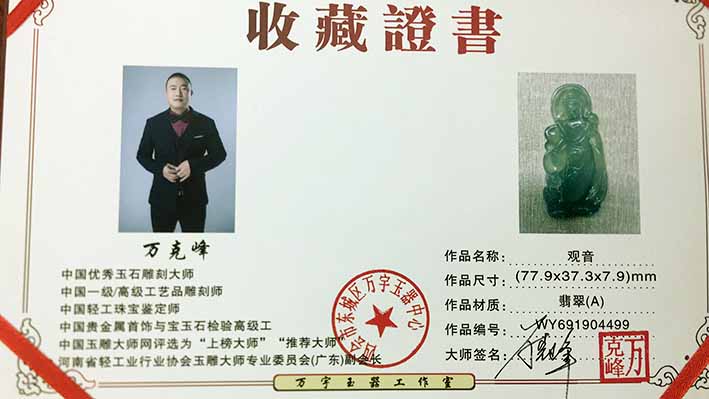 收藏證書
万克峰
中国优秀玉石雕刻大师
中国一级/高级工艺品雕刻师
中国轻工珠宝鉴定师
中国贵金属首饰与宝玉石检验高级工
中国玉雕大师网评选为“上榜大师”“推荐大师”
河南省轻工业行业协会玉雕大师专业委员会(广东)副会长
作品名称: 观音
作品尺寸: (77.9x37.3x7.9)mm
作品材质: 翡翠(A)
作品编号: WY691904499
大师签名:
万克峰
会市东城区万宇玉器中心
万宇玉器工作室